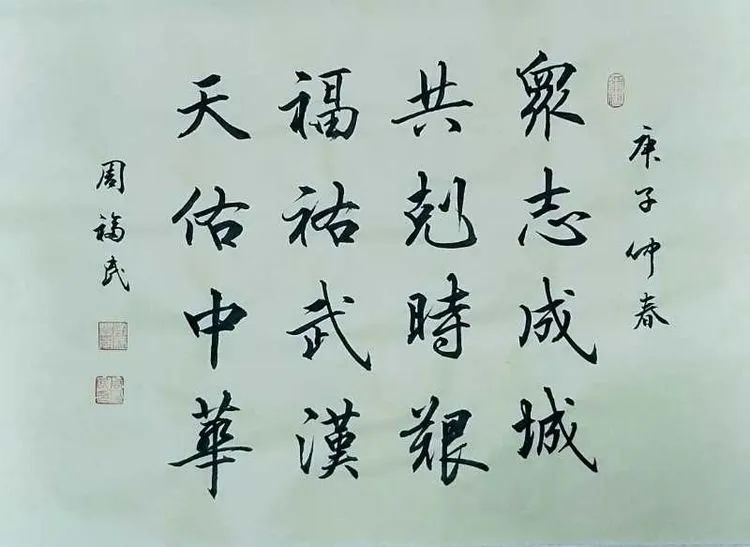 庚子仲春
眾志成城
共剋時艱
福祐武漢
天佑中華
周福民